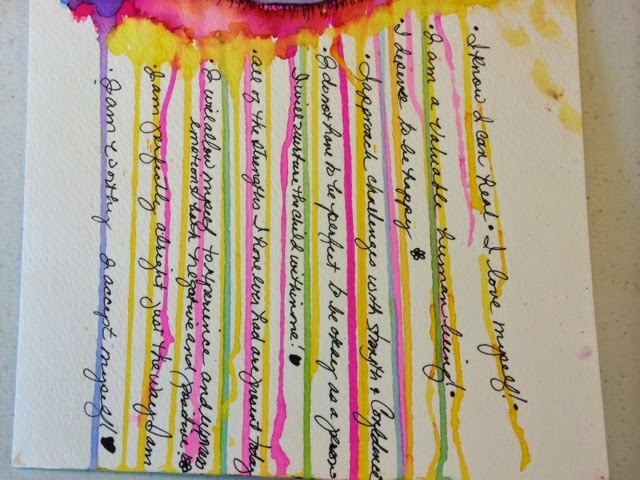 • I know I can heal • I love myself! •
• I am a valuable human being! •
• I deserve to be happy
• I approach challenges with strength & Confidence
• I do not have to be perfect to be okay as a person
I will nurture the child within me! ♥
• all of the strengths I have ever had are present today
• I will allow myself to experience and express
emotions both negative and positive!
• I am perfectly alright just the way I am
• I am worthy I accept myself! ♥